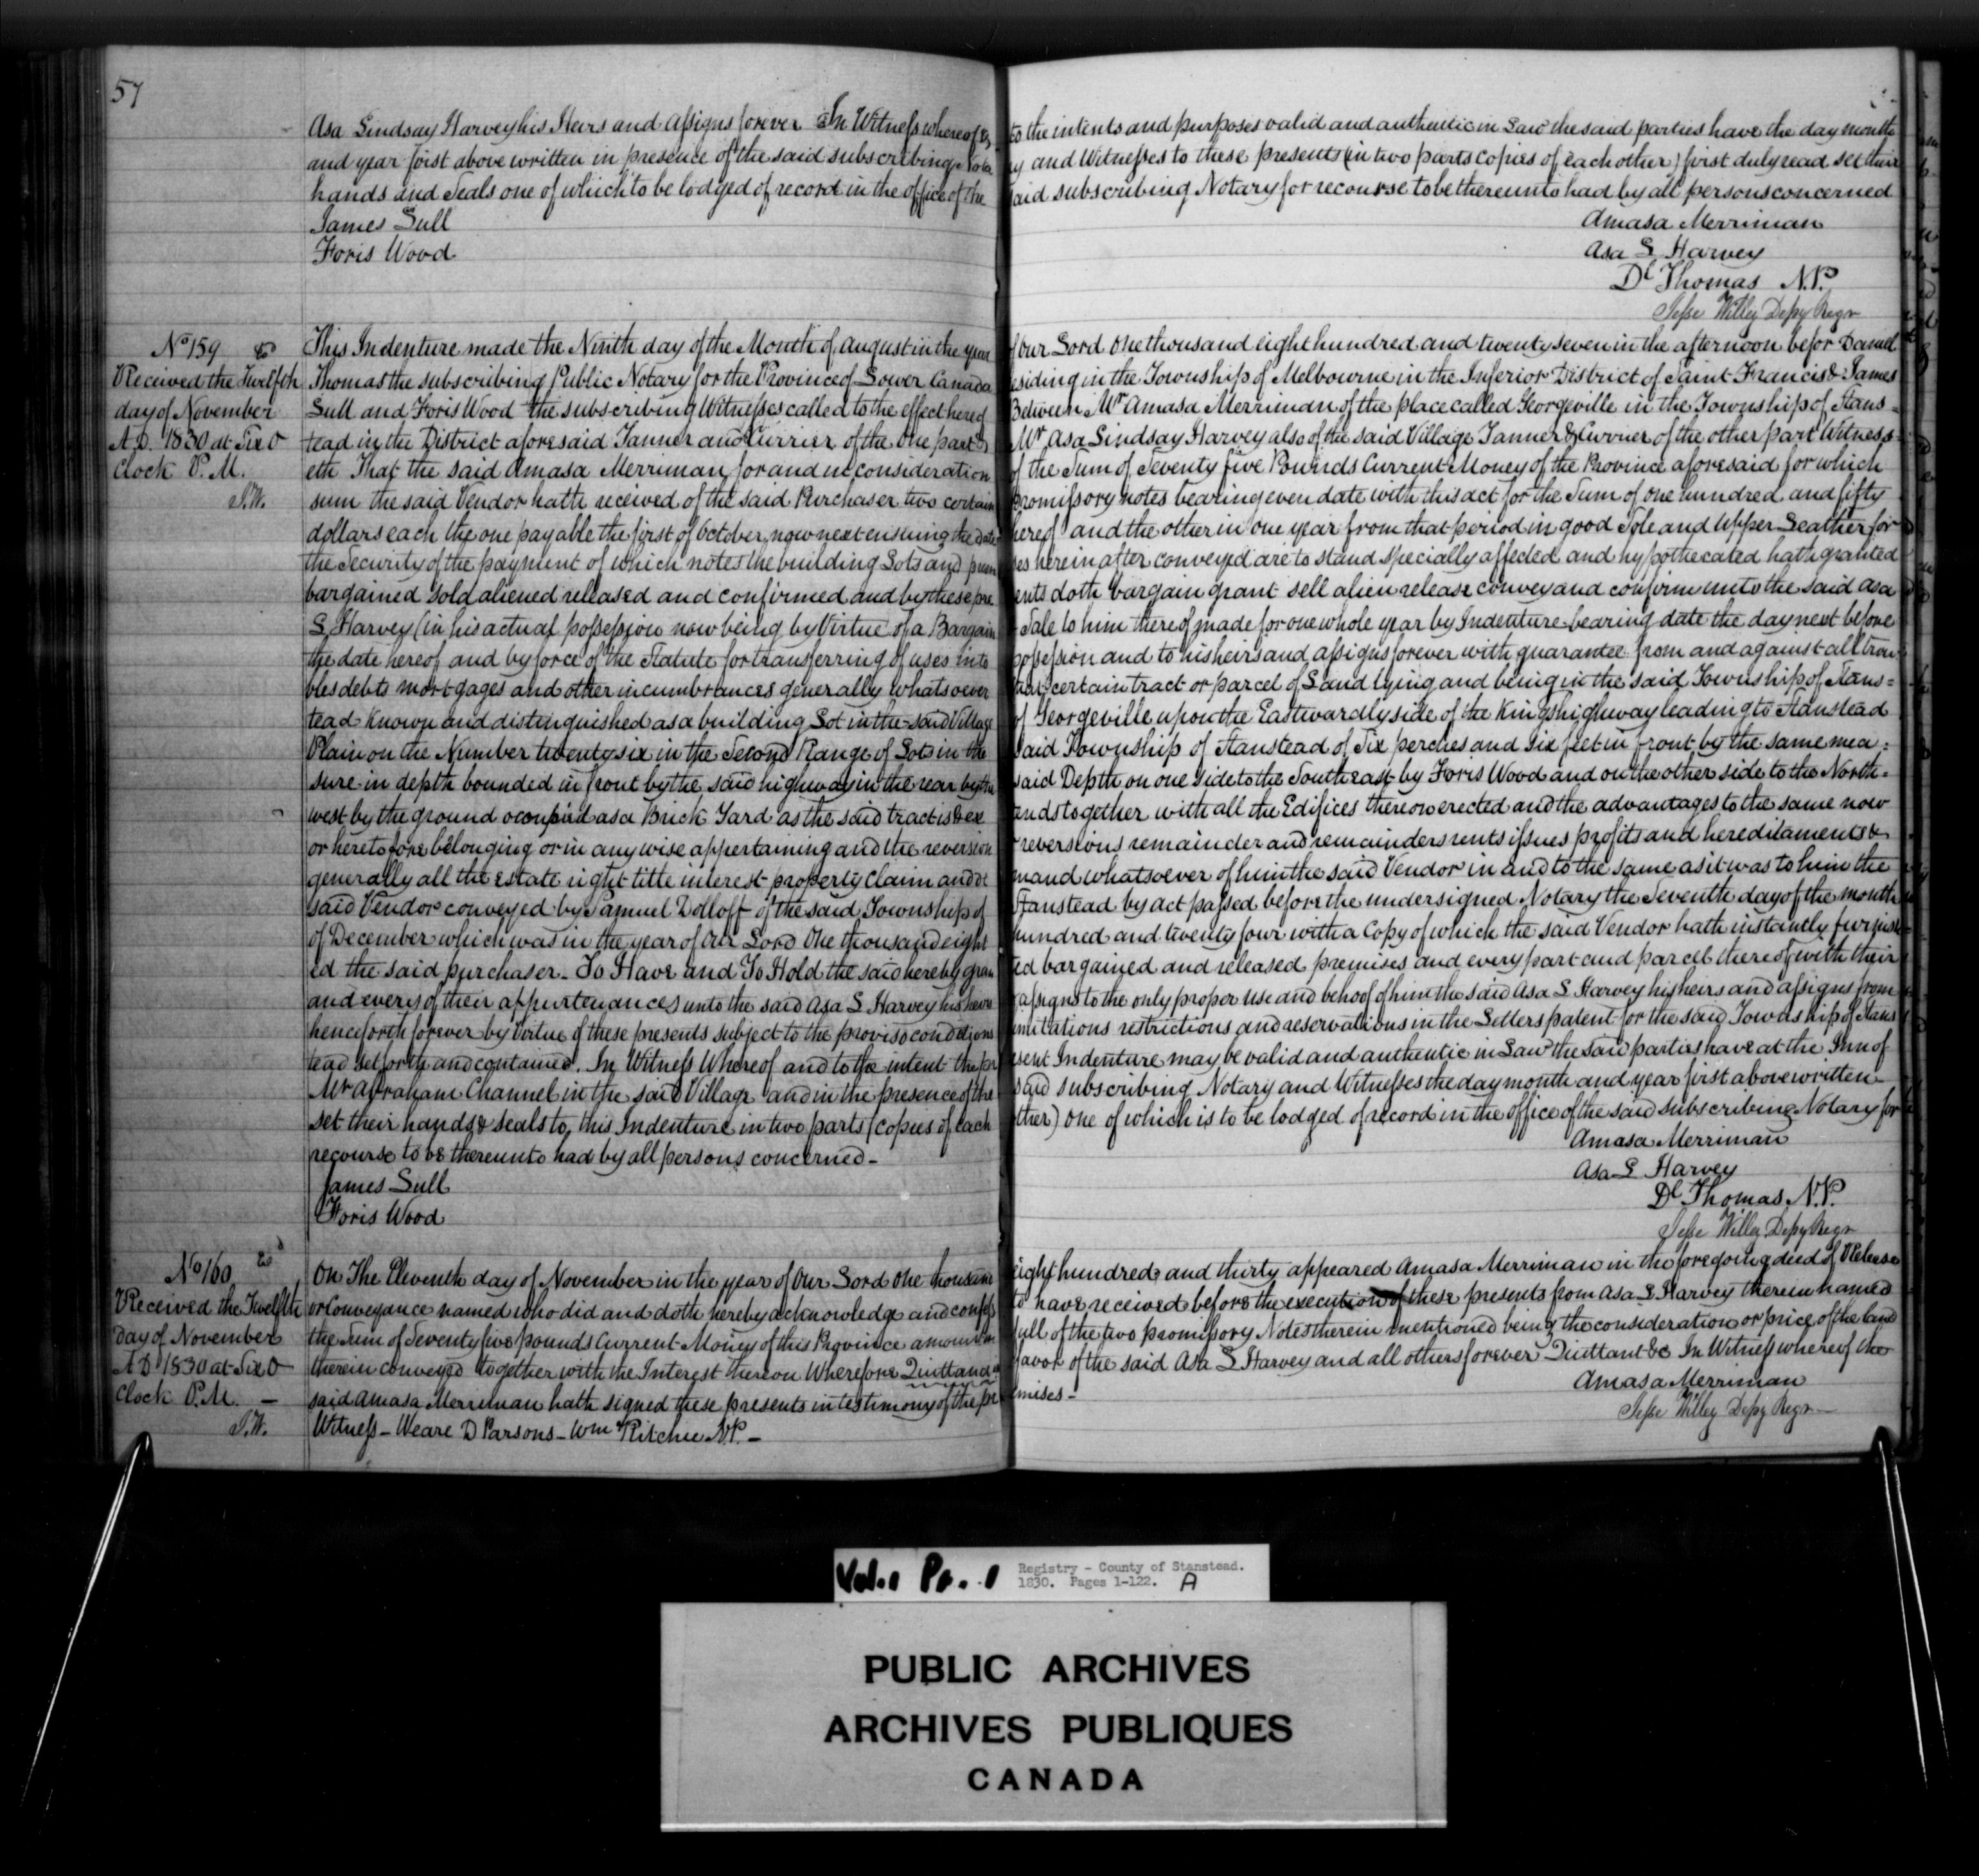 57
Asa Lindsay Harvey his Heirs and assigns forever In Witness whereof & to the intents and purposes valid and authentic in Law the said parties have the day month
and year first above written in presence of the said subscribing Notary and Witnesses to these presents (in two parts copies of each other) first duly read set their
hands and Seals one of which to be lodged of record in the office of the said subscribing Notary for recourse to be thereunto had by all persons concerned
James Lull
Foris Wood
Amasa Merriman
Asa L Harvey
Dl Thomas N.P.
Jesse Willey Depy Regr
No 159
Received the Twelfth
day of November
A.D. 1830 at Six O
Clock P.M.
J.W.
This Indenture made the Ninth day of the Month of August in the year of Our Lord One thousand eight hundred and twenty seven in the afternoon befor Daniel
Thomas the subscribing Public Notary for the Province of Lower Canada residing in the Township of Melbourne in the Inferior District of Saint Francis & James
Lull and Foris Wood the subscribing Witnesses called to the effect hereof Between Mr Amasa Merriman of the place called Georgeville in the Township of Stans=
tead in the District aforesaid Tanner and Currier of the One part & Mr Asa Lindsay Harvey also of the said Village Tanner & Currier of the other part Witness=
eth That the said Amasa Merriman for and in consideration of the Sum of Seventy five Pounds Current Money of the Province aforesaid for which
sum the said Vendor hath received of the said Purchaser two certain promissory notes bearing even date with this act for the Sum of one hundred and fifty
dollars each the one payable the first of October now next ensuing the date hereof and the other in one year from that period in good Sole and Upper Leather for
the Security of the payment of which notes the building Lots and premises herein after conveyed are to stand specially affected and hypothecated hath granted
bargained sold aliened released and confirmed and by these presents doth bargain grant sell alien release convey and confirm unto the said Asa
L Harvey (in his actual possession now being by Virtue of a Bargain & Sale to him thereof made for one whole year by Indenture bearing date the day next before
the date hereof and by force of the Statute for transferring of uses into possession and to his heirs and assigns forever with guarantee from and against all trou=
bles debts mortgages and other incumbrances generally whatsoever that certain tract or parcel of Land lying and being in the said Township of Stans=
tead Known and distinguished as a building Lot in the said Village of Georgeville upon the Eastwardly side of the Kings highway leading to Stanstead
Plain on the Number twenty six in the Second Range of Lots in the said Township of Stanstead of Six perches and six feet in front by the same mea=
sure in depth bounded in front by the said highway in the rear by the said Depth on one side to the South east by Foris Wood and on the other side to the North=
west by the ground occupied as a Brick Yard as the said tract is & extends together with all the Edifices thereon erected and the advantages to the same now
or heretofore belonging or in any wise appertaining and the reversion reversions remainder and remainders rents issues profits and hereditaments &
generally all the estate right title interest property claim and demand whatsoever of him the said Vendor in and to the same as it was to him the
said Vendor conveyed by Samuel Dolloff of the said Township of Stanstead by act passed before the undersigned Notary the Seventh day of the month
of December which was in the year of Our Lord One thousand eight hundred and twenty four with a Copy of which the said Vendor hath instantly furnish=
ed the said purchaser - To Have and To Hold the said hereby granted bargained and released premises and every part and parcel thereof with their
and every of their appurtenances unto the said Asa L Harvey his heirs & assigns to the only proper use and behoof of him the said Asa L Harvey his heirs and assigns from
henceforth forever by Virtue of these presents subject to the proviso conditions limitations restrictions and reservations in the Letters patent for the said Township of Stans
tead set forth and contained. In Witness Whereof and to the intent the present Indenture may be valid and authentic in Law the said parties have at the Inn of
Mr Abraham Channel in the said Village and in the presence of the said subscribing Notary and Witnesses the day month and year first above written
set their hands & seals to this Indenture in two parts (copies of each other) one of which is to be lodged of record in the office of the said subscribing Notary for
recourse to be thereunto had by all persons concerned -
James Lull
Foris Wood
Amasa Merriman
Asa L Harvey
Dl Thomas N.P.
Jesse Willey Depy Regr
No 160
Received the Twelfth
day of November
A D 1830 at Six O
Clock P.M. -
J.W.
On The Eleventh day of November in the year of Our Lord One thousand eight hundred and thirty appeared Amasa Merriman in the foregoing deed of Release
or Conveyance named who did and doth hereby acknowledge and confess to have received before the execution of these presents from Asa L Harvey therein named
the Sum of Seventy five pounds Current Money of this Province amount in full of the two promissory Notes therein mentioned being the consideration or price of the land
therein conveyed together with the Interest thereon Wherefore Quittance in favor of the said Asa L Harvey and all others forever Quittant &c In Witness whereof the
said Amasa Merriman hath signed these presents in testimony of the premises -
Witness - Weare D Parsons - Wm Ritchie N.P. -
Amasa Merriman
Jesse Willey Depy Regr -
Vol. 1 Pa. 1
Registry - County of Stanstead.
1830. Pages 1-122. A
PUBLIC ARCHIVES
ARCHIVES PUBLIQUES
CANADA